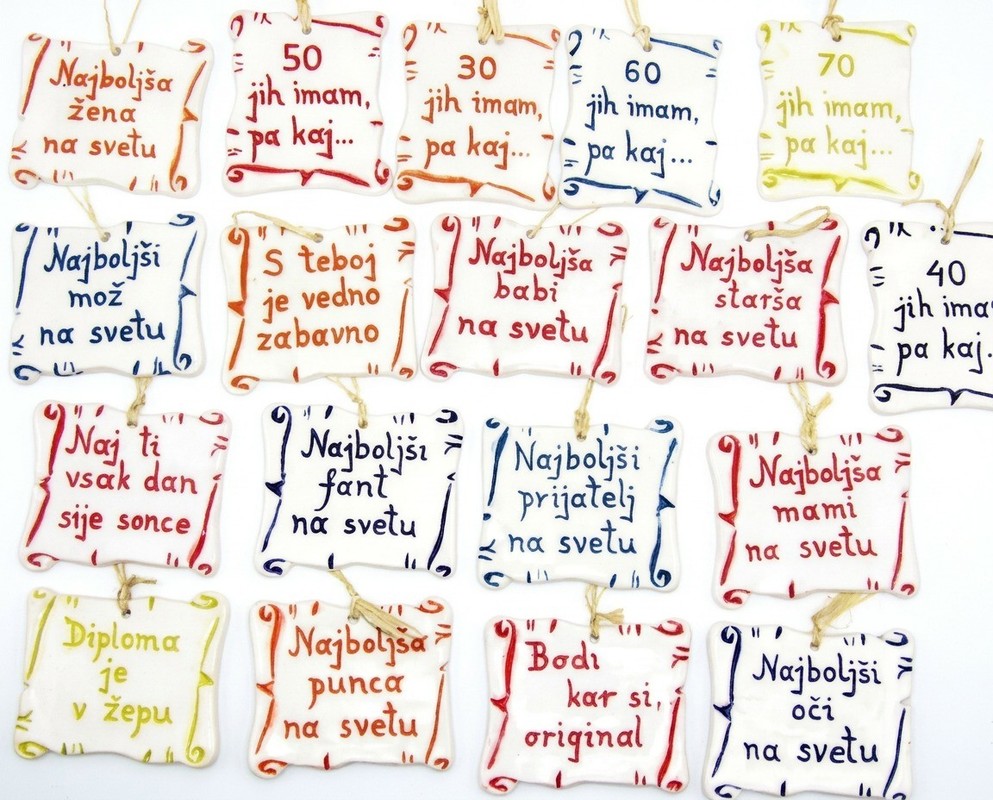 Najboljša
žena
na svetu
50
jih imam,
pa kaj...
30
jih imam,
pa kaj...
60
jih imam,
pa kaj...
70
jih imam,
pa kaj...
Najboljši
mož
na svetu
S teboj
je vedno
zabavno
Najboljša
babi
na svetu
Najboljša
starša
na svetu
40
jih ima
pa kaj.
Naj ti
vsak dan
sije sonce
Najboljši
fant
na svetu
Najboljši
prijatelj
na svetu
Najboljša
mami
na svetu
Diploma
je
v žepu
Najboljša
punca
na svetu
Bodi
kar si,
original
Najboljši
oči
na svetu